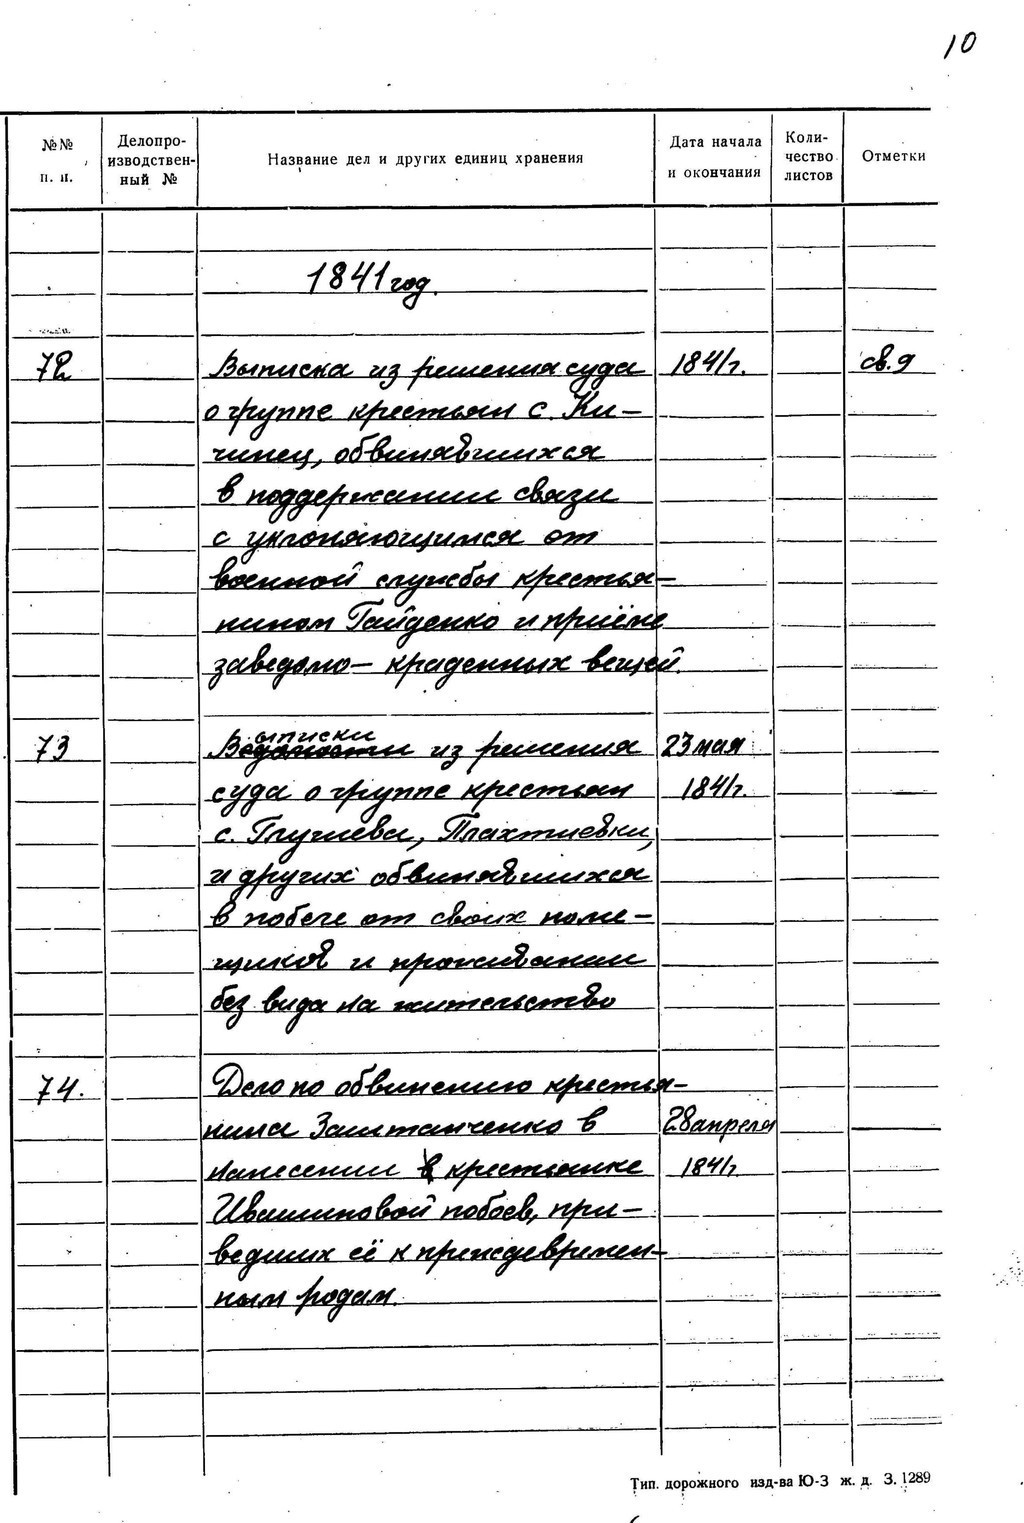 10
№№ п. п. Делопро- изводствен- ный № Название дел и других единиц хранения Дата начала и окончания Коли- чество листов Отметки
1841 год.
72 Выписка из решения суда 1841 г. св. 9
о группе крестьян с. Ки-
чинец, обвинявшихся
в поддержании связи
с уклоняющимся от
военной службы крестья-
нином Гайденко и приёме
заведомо – краденных вещей.
73 Выписки из решения 23 мая
суда о группе крестьян 1841 г.
с. Глушева, Плахтиевки,
и других обвинявшихся
в побеге от своих поме-
щиков и проживании
без вида на жительство
74. Дело по обвинению крестья-
нина Заштанченко в 28 апреля
нанесении крестьянке 1841 г.
Ивашиновой побоев, при-
ведших её к преждевремен-
ным родам.
Тип. дорожного изд-ва Ю-З ж. д. З. 1289